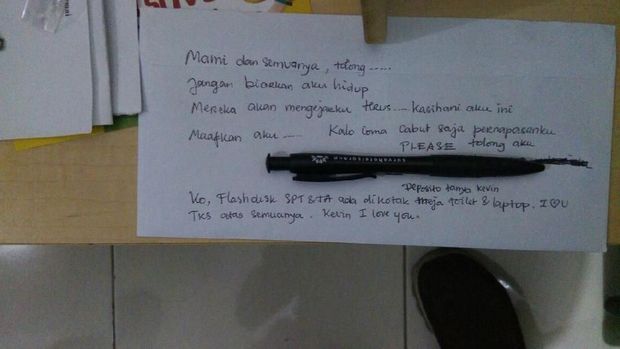 Mami dan semuanya, tolong .....
Jangan biarkan aku hidup
Mereka akan mengejarku terus .... Kasihani aku ini
Maafkan aku .... Kalo coma cabut saja pernapasanku
PLEASE tolong aku
Deposito tanya Kevin
Ko, Flashdisk SPT & TA ada dikotak meja toilet & laptop. I ♡ U
TKS atas semuanya. Kevin I love you.